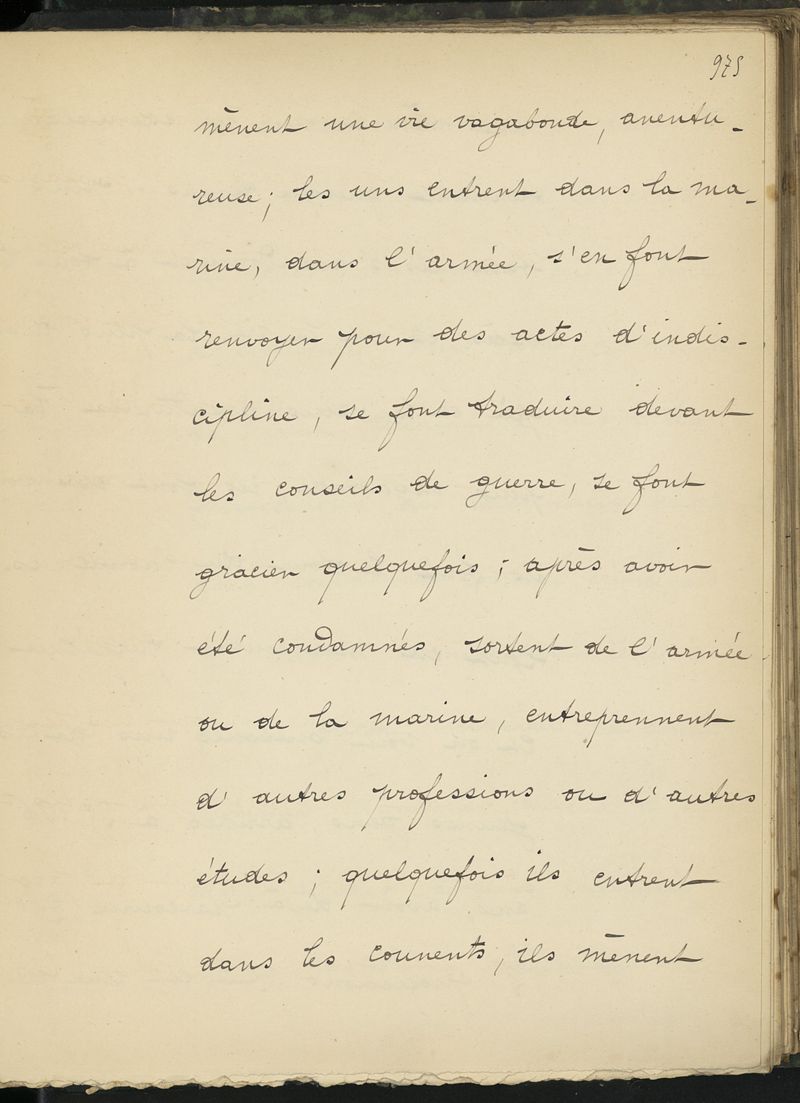 975
mènent une vie vagabonde, aventu-
reuse; les uns entrent dans la ma-
rine, dans l'armée, s'en font
renvoyer pour des actes d'indis-
cipline, se font traduire devant
les conseils de guerre, se font
gracier quelquefois; après avoir
été condamnés, sortent de l'armée
ou de la marine, entreprennent
d'autres professions ou d'autres
études; quelquefois ils entrent
dans les couvents, ils mènent